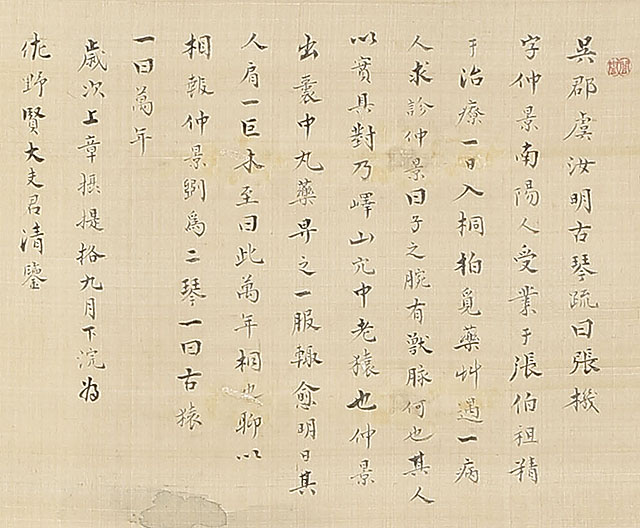 吳郡虞汝明古琴疏曰張機
字仲景南陽人受業于張伯祖精
于治療一日入桐柏覓藥艸遇一病
人求診仲景曰子之腕有獸脉何也其人
以實具對乃嶧山穴中老猿也仲景
出囊中丸藥畀之一服輒愈明日其
人肩一巨木至曰此萬年桐也聊以
相報仲景斵為二琴一曰古猿
一曰萬年
歲次上章攝提格九月下浣為
佐野賢大夫君清鑒